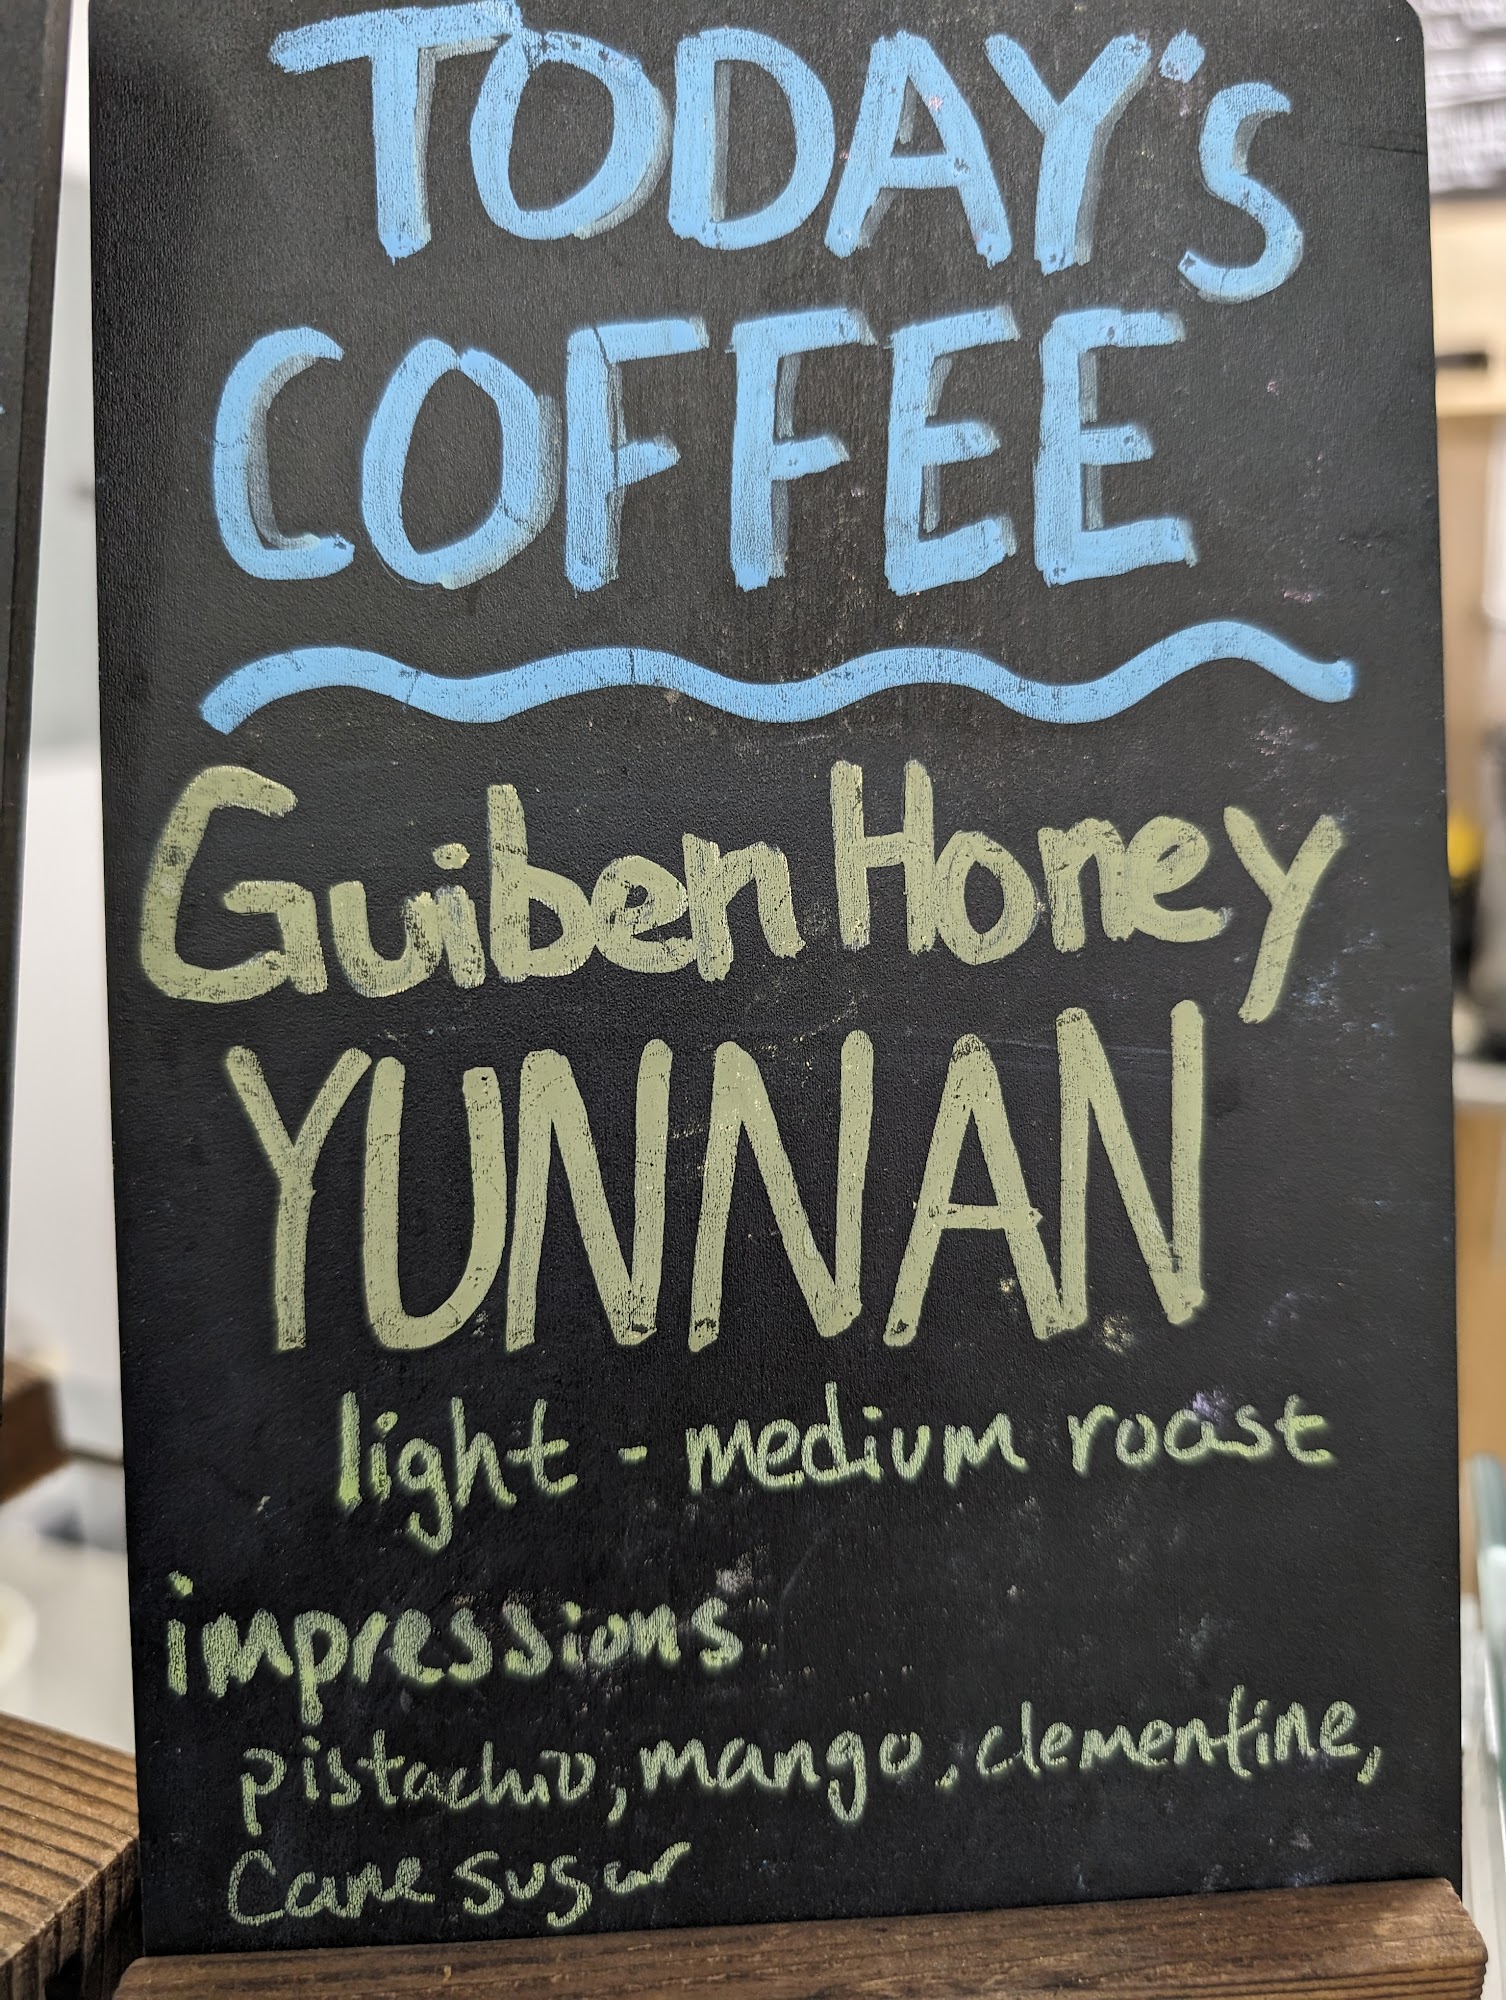 TODAY's
COFFEE
Guiben Honey
YUNNAN
light - medium roast
impressions:
pistachio, mango, clementine,
Cane sugar